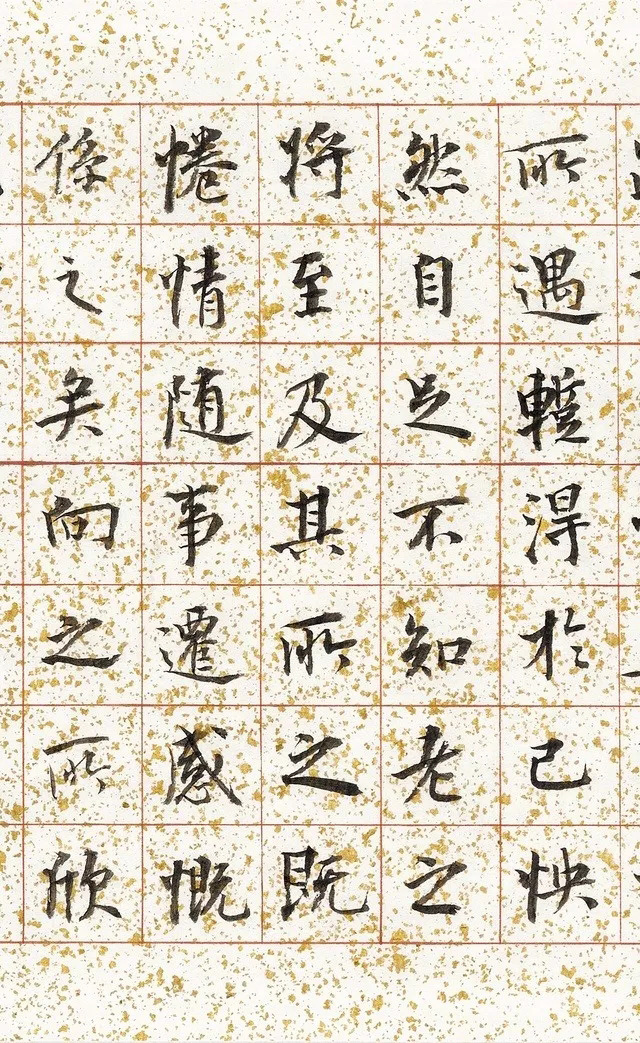 所遇蹔得於己怏
然自足不知老之
將至及其所之既
惓情随事遷感慨
係之矣向之所欣